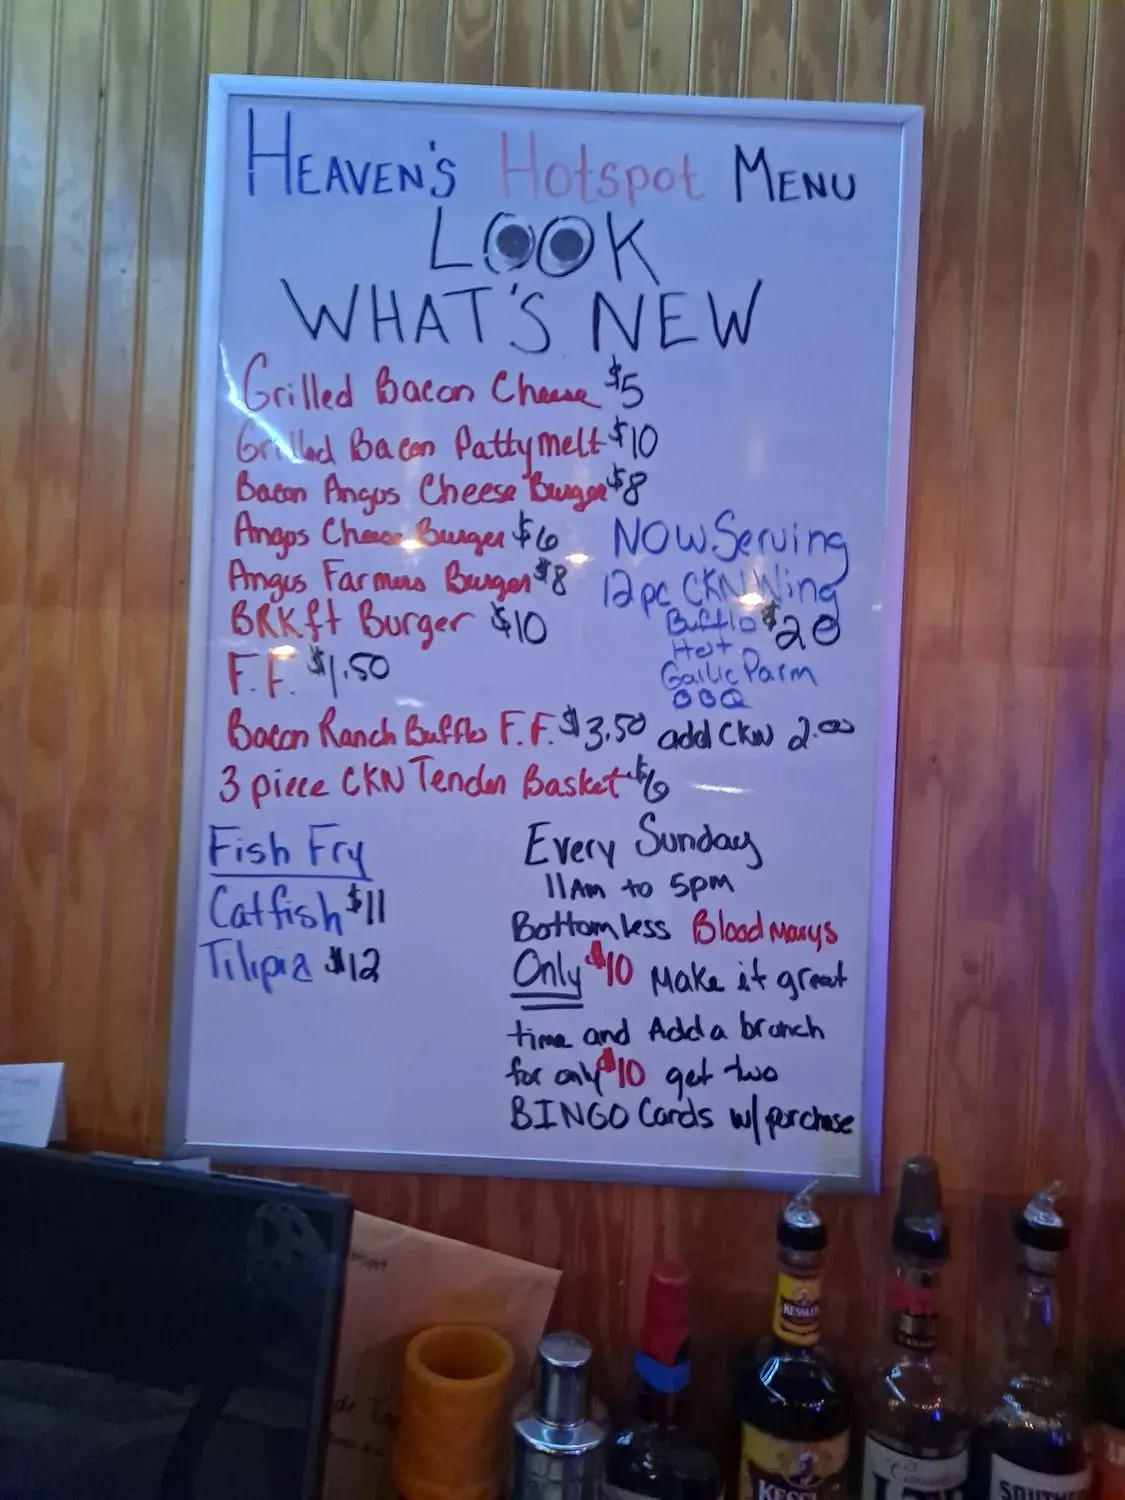 HEAVEN'S Hotspot MENU
LOOK
WHAT'S NEW
Grilled Bacon Cheese $5
Grilled Bacon Pattymelt $10
Bacon Angus Cheese Burger $8
Angus Cheese Burger $6
Angus Farmers Burger $8
BRKft Burger $10
F.F. $1.50
NOW Serving
12pc CKN Wing
Bufflo $20
Hot
Garlic Parm
BBQ
Bacon Ranch Bufflo F.F. $3.50 add CKN 2.00
3 piece CKN Tender Basket $6
Fish Fry
Catfish $11
Tilipia $12
Every Sunday
11Am to 5pm
Bottomless Blood marys
Only $10 Make it great
time and Add a brunch
for only $10 get two
BINGO Cards w/ purchase
KESSLER
KESSL
Canadian
SOUTHE